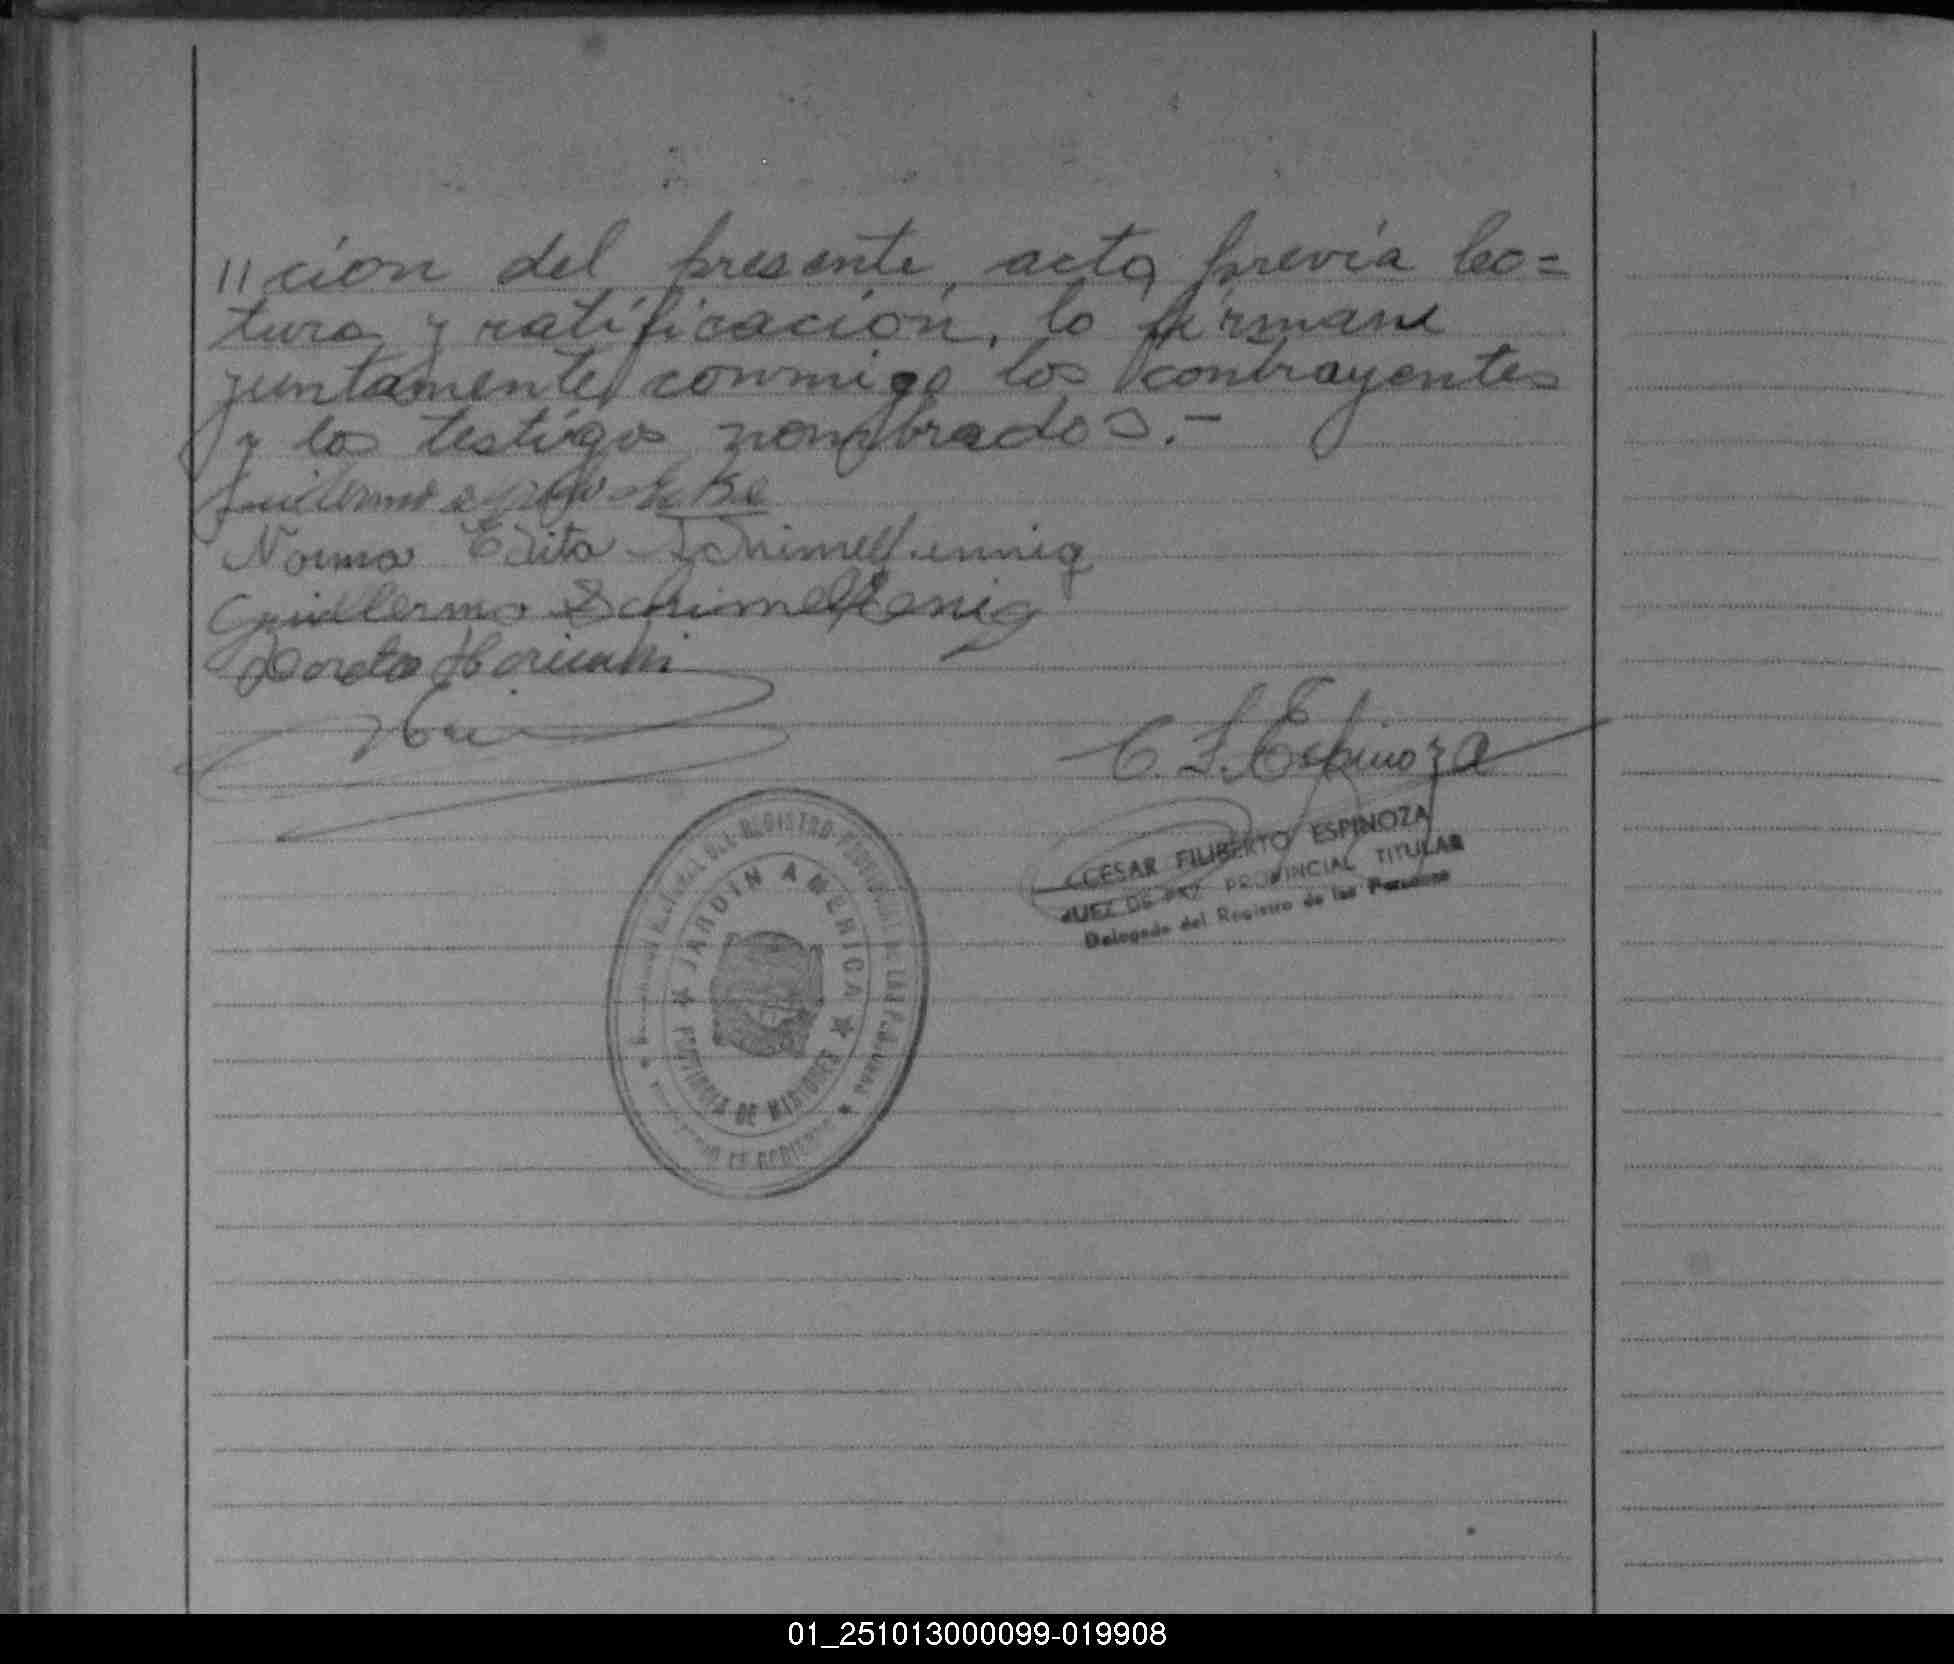 //ción del presente acta, previa lec=
tura y ratificación, lo firmane
juntamente conmigo los contrayentes
y los testigos nombrados.-
Guillermo
Norma Edita Schimelfennig
Guillermo Schimelfenig
Loreto
C. F. Espinoza
CESAR FILIBERTO ESPINOZA
JUEZ DE PAZ PROVINCIAL TITULAR
Delegado del Registro de las Personas
DEL REGISTRO PROVINCIAL DE LAS PERSONAS
JARDIN AMERICA
PROVINCIA DE MISIONES
DE GOBIERNO
01_251013000099-019908